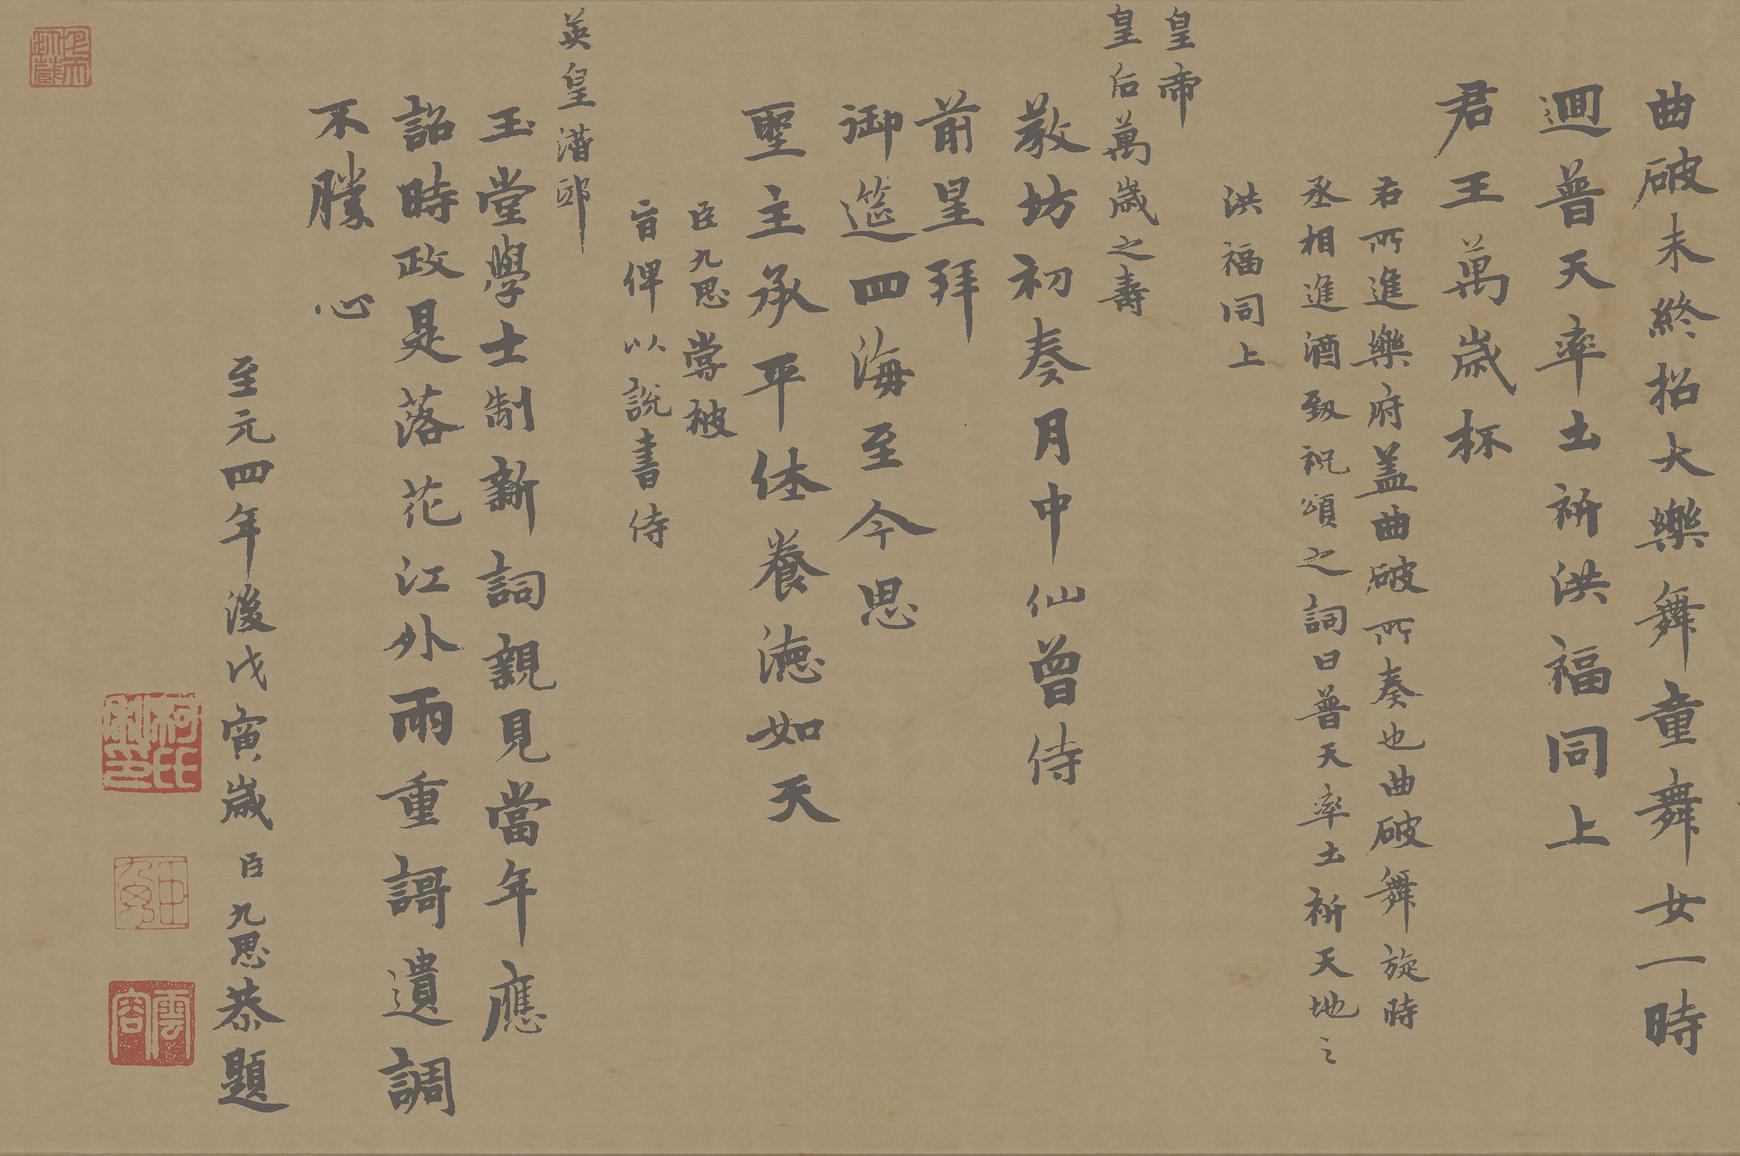 曲破未終招大樂舞童舞女一時
迴普天率土祈洪福同上
君王萬歲杯
君所進樂府蓋曲破所奏也曲破舞旋時
丞相進酒致祝頌之詞曰普天率土祈天地之
洪福同上
皇帝
皇后萬歲之壽
教坊初奏月中仙曾侍
前星拜
御筵四海至今思
聖主承平佳養德如天
臣九思嘗被
旨俾以說書侍
英皇潛邸
玉堂學士制新詞親見當年應
詔時政是落花江外雨重謌遺調
不勝心
至元四年後戊寅歲臣九思恭題
柯氏敬仲
雲容